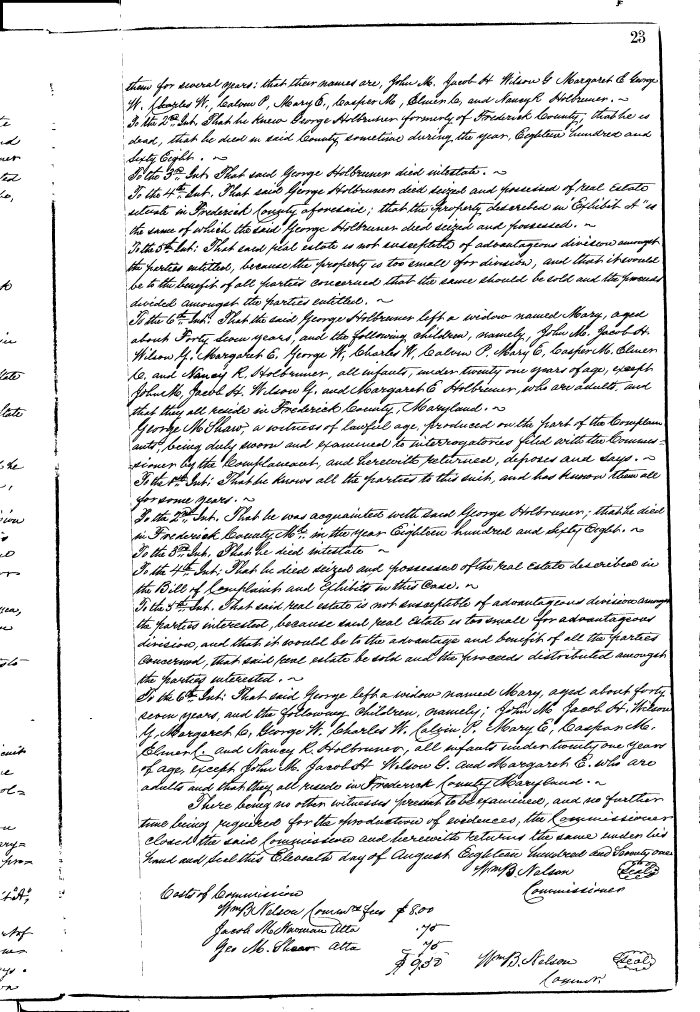 23
them for several years; that their names are, John M. Jacob H Wilson G Margaret E George
W. Charles W., Calvin P, Mary E., Casper M, Elmer C, and Nancy R Holbruner. ~
To the 2nd Int. That he knew George Holbruner formerly of Frederick County; that he is
dead, that he died in said County sometime during the year Eighteen hundred and
Sixty Eight. ~
To the 3rd Int. That said George Holbruner died intestate. ~
To the 4th Int. That said George Holbruner died seized and possessed of real Estate
situate in Frederick County aforesaid; that the property described in "Exhibit A" is
the same of which the said George Holbruner died seized and possessed. ~
To the 5th Int: That said real estate is not susceptible of advantageous division amongst
the parties entitled, because the property is too small for division, and that it would
be to the benefit of all parties concerned that the same should be sold and the proceeds
divided amongst the parties entitled. ~
To the 6th Int: That the said George Holbruner left a widow named Mary, aged
about Forty Seven years, and the following children, namely, John M. Jacob H.
Wilson G. Margaret E, George W, Charles W, Calvin P. Mary E, Casper M. Elmer
C. and Nancy R. Holbruner, all infants, under twenty one years of age, except
John M, Jacob H. Wilson G. and Margaret E Holbruner, who are adults, and
that they all reside in Frederick County, Maryland. ~
George M Shaw, a witness of lawful age, produced on the part of the Complain
ants, being duly sworn and examined to interrogatories filed with the Commis=
sioner by the Complainant, and herewith returned, deposes and says. ~
To the 1st Int: That he knows all the parties to this suit, and has known them all
for some years. ~
To the 2nd Int. That he was acquainted with said George Holbruner; that he died
in Frederick County Md. in the year Eighteen hundred and Sixty Eight. ~
To the 3rd Int. That he died intestate ~
To the 4th Int: That he died seized and possessed of the real estate described in
the Bill of Complaint and Exhibits in this Case. ~
To the 5th Int. That said real estate is not susceptible of advantageous division amongst
the parties interested, because said real estate is too small for advantageous
division, and that it would be to the advantage and benefit of all the parties
concerned, that said real estate be sold and the proceeds distributed amongst
the parties interested. ~
To the 6th Int: That said George left a widow named Mary, aged about forty
seven years, and the following children, namely; John M. Jacob H. Wilson
G, Margaret E, George W, Charles W. Calvin P. Mary E, Caspar M.
Elmer C. and Nancy R. Holbruner, all infants under twenty one years
of age, except John M. Jacob H Wilson G. and Margaret E. who are
adults and that they all reside in Frederick County Maryland. ~
There being no other witnesses present to be examined, and no further
time being required for the production of evidences, the Commissioner
closed the said Commission and herewith returns the same under his
hand and seal this Eleventh day of August Eighteen hundred and Seventy one
Wm B. Nelson Seal
Commissioner
Costs of Commission
Wm B Nelson Comrs fees $8.00
Jacob M Atta .75
Geo M. Shaw Atta .75
$9.50
Wm B. Nelson Seal